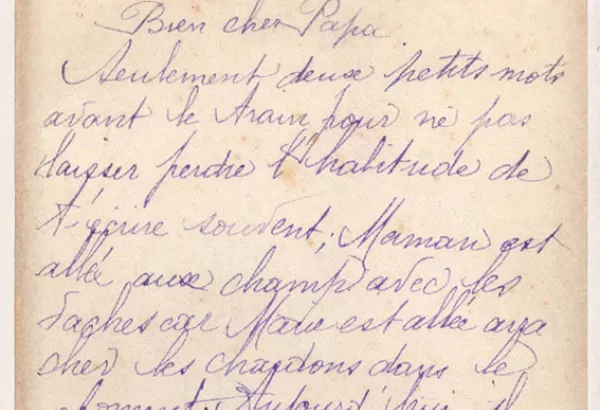 Bien cher Papa
Seulement deux petits mots
avant le train pour ne pas
laisser perdre l'habitude de
t'écrire souvent; Maman est
allée aux champs avec les
vaches car Marie est allée arra
cher les chardons dans le
froment. Aujourd'hui il